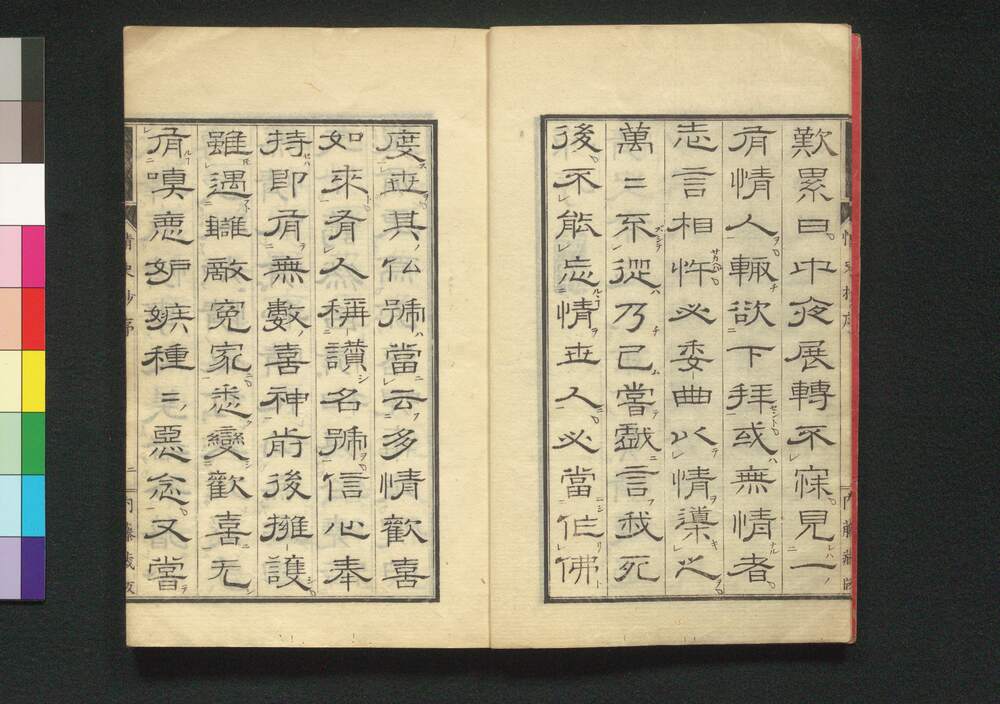 歎累日中夜展轉不寐見一
有情人輒欲下拜或無情者
志言相忤必委曲以情導之
萬〻不從乃已嘗戲言我死
後不能忘情世人必當作佛
度世其仏號當云多情歡喜
如來有人稱讚名號信心奉
持即有無數喜神前後擁護
雖遇讎敵冤家悉變歡喜无
有嗔恚妒嫉種〻惡念又嘗